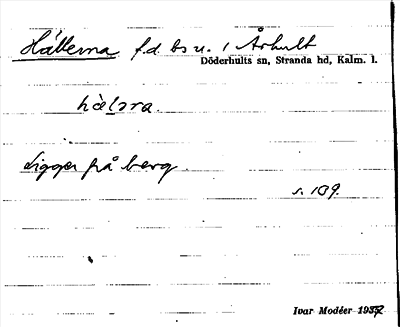 Hällerna f.d. bs u. i Århult
Döderhults sn, Stranda hd, Kalm. l.
hælɔra.
Ligger på berg
s. 109.
Ivar Modéer 1937